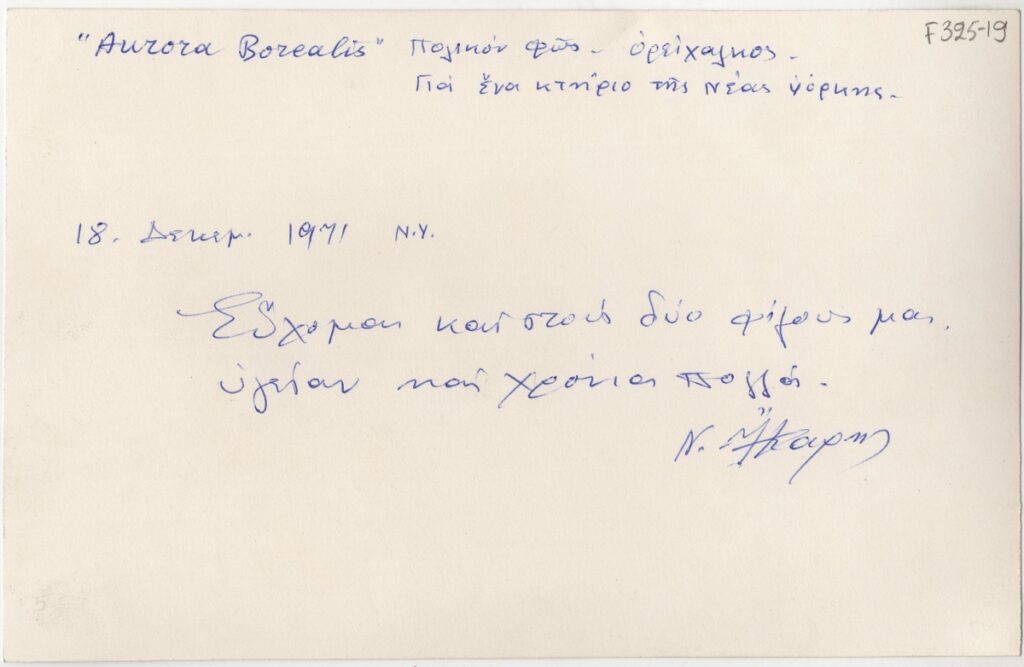 F325-19
"Aurora Borealis" Πολικόν φῶς - ὀρείχαλκος -
Γιά ἕνα κτήριο τῆς Νέας Ὑόρκης -
18. Δεκεμ. 1971 N.Y.
Εὔχομαι καί στούς δύο φίλους μας,
ὑγείαν καί χρόνια πολλά.
Ν. Ἴκαρης